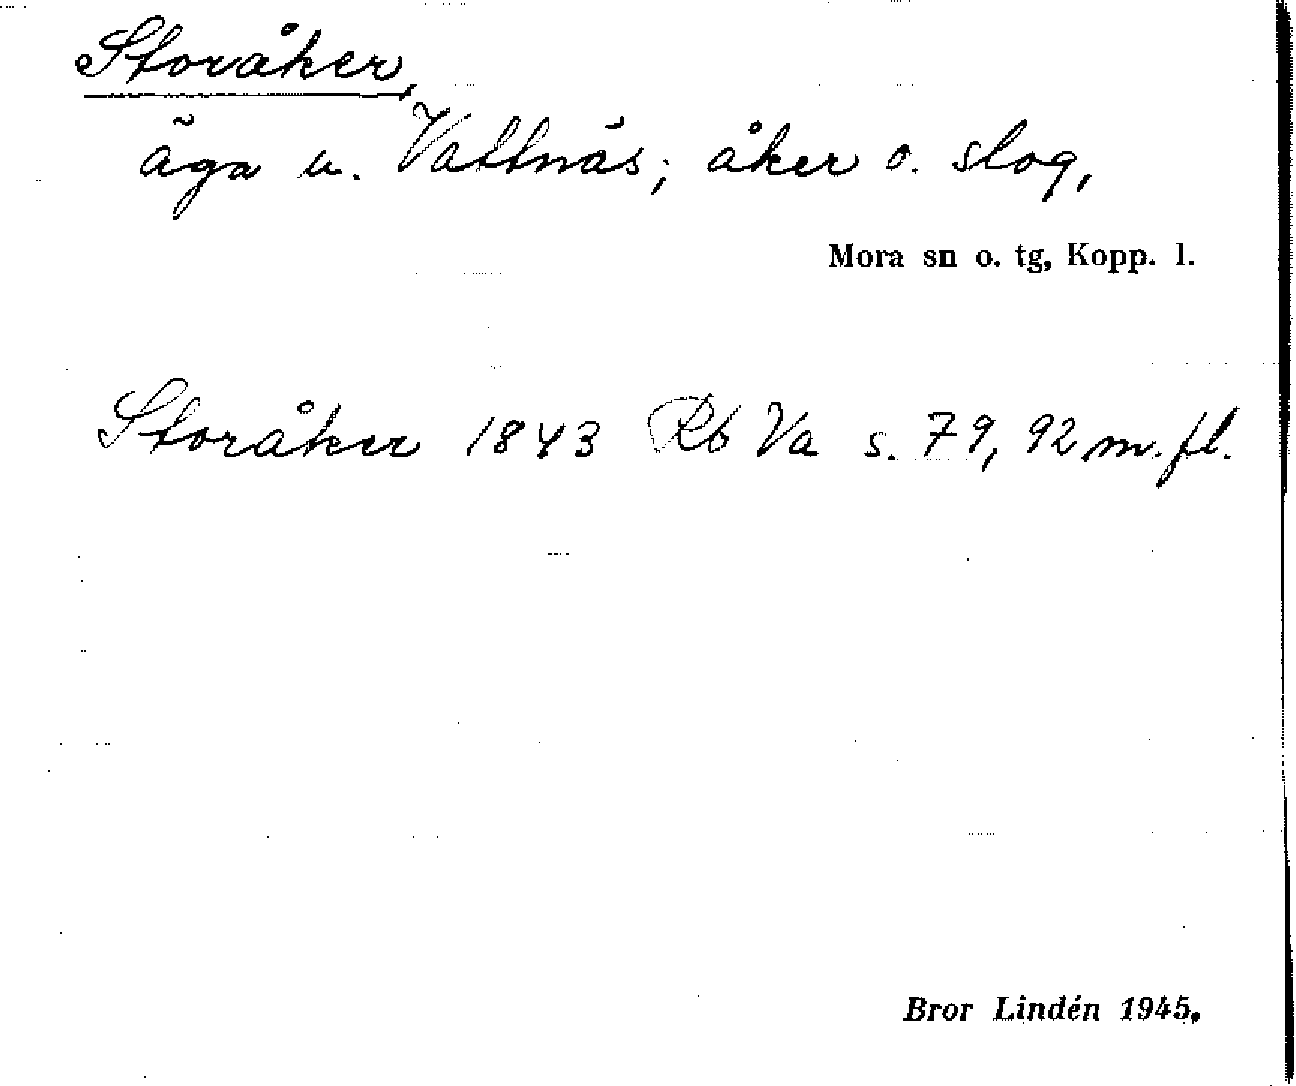 Storåker,
äga u. Vattnäs; åker o. slog,
Mora sn o. tg, Kopp. l.
Storåker 1843 Rb Va s. 79, 92 m.fl.
Bror Lindén 1945.